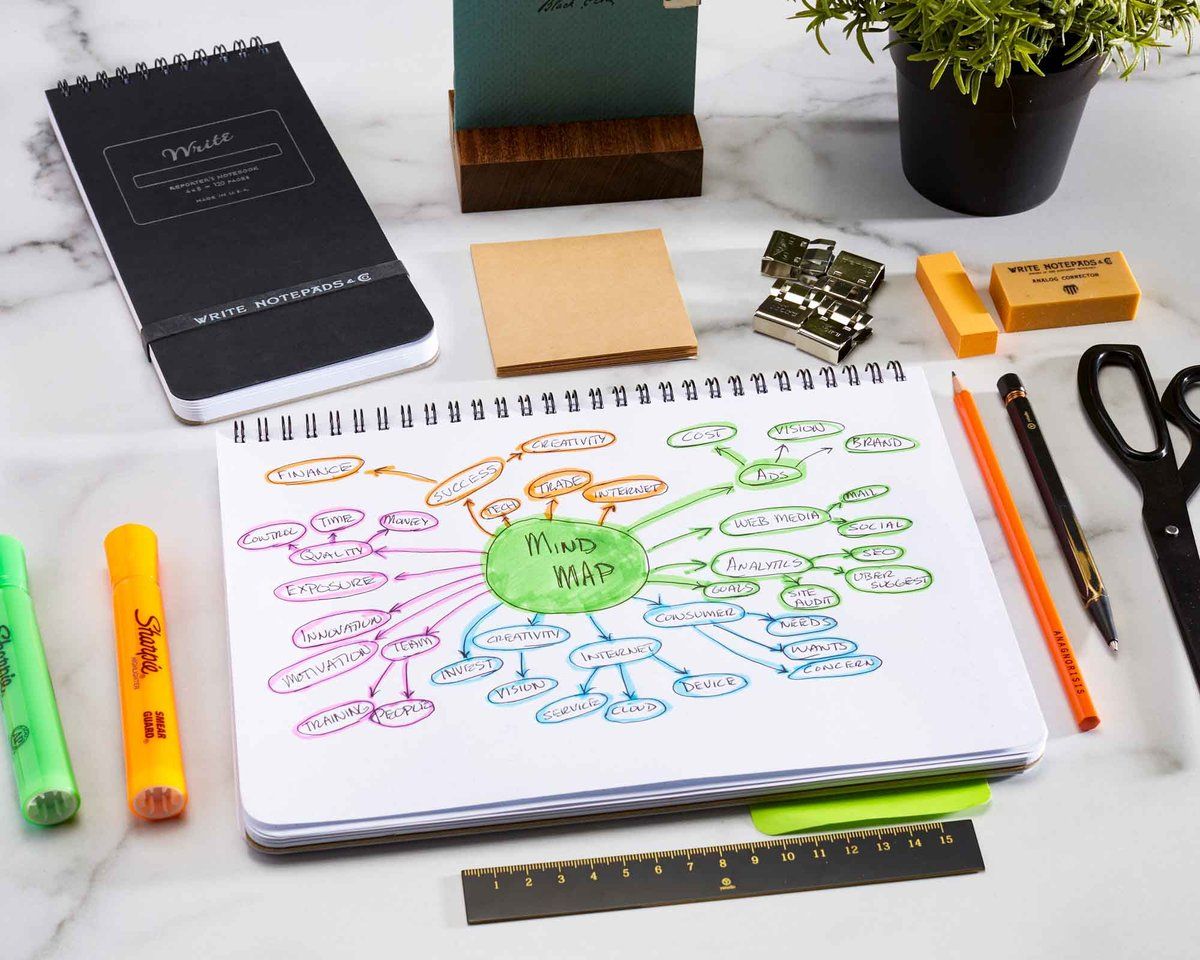 Black
Write
REPORTER'S NOTEBOOK
120 PAGES
MADE IN U.S.A.
WRITE NOTEPADS & Co
WRITE NOTEPADS & Co
ANALOG CORRECTOR
CREATIVITY
FINANCE
SUCCESS
TECH
TRADE
INTERNET
COST
VISION
BRAND
ADS
MAIL
WEB MEDIA
SOCIAL
ANALYTICS
SEO
UBER
SUGGEST
GOALS
SITE
AUDIT
MIND
MAP
CONTROL
TIME
MONEY
QUALITY
EXPOSURE
INNOVATION
MOTIVATION
TEAM
TRAINING
PEOPLE
CREATIVITY
INVEST
VISION
INTERNET
SERVICE
CLOUD
DEVICE
CONSUMER
NEEDS
WANTS
CONCERN
Sharpie
Sharpie
HIGHLIGHTER
SMEAR
GUARD
ANAGNORISIS
1 2 3 4 5 6 7 8 9 10 11 12 13 14 15